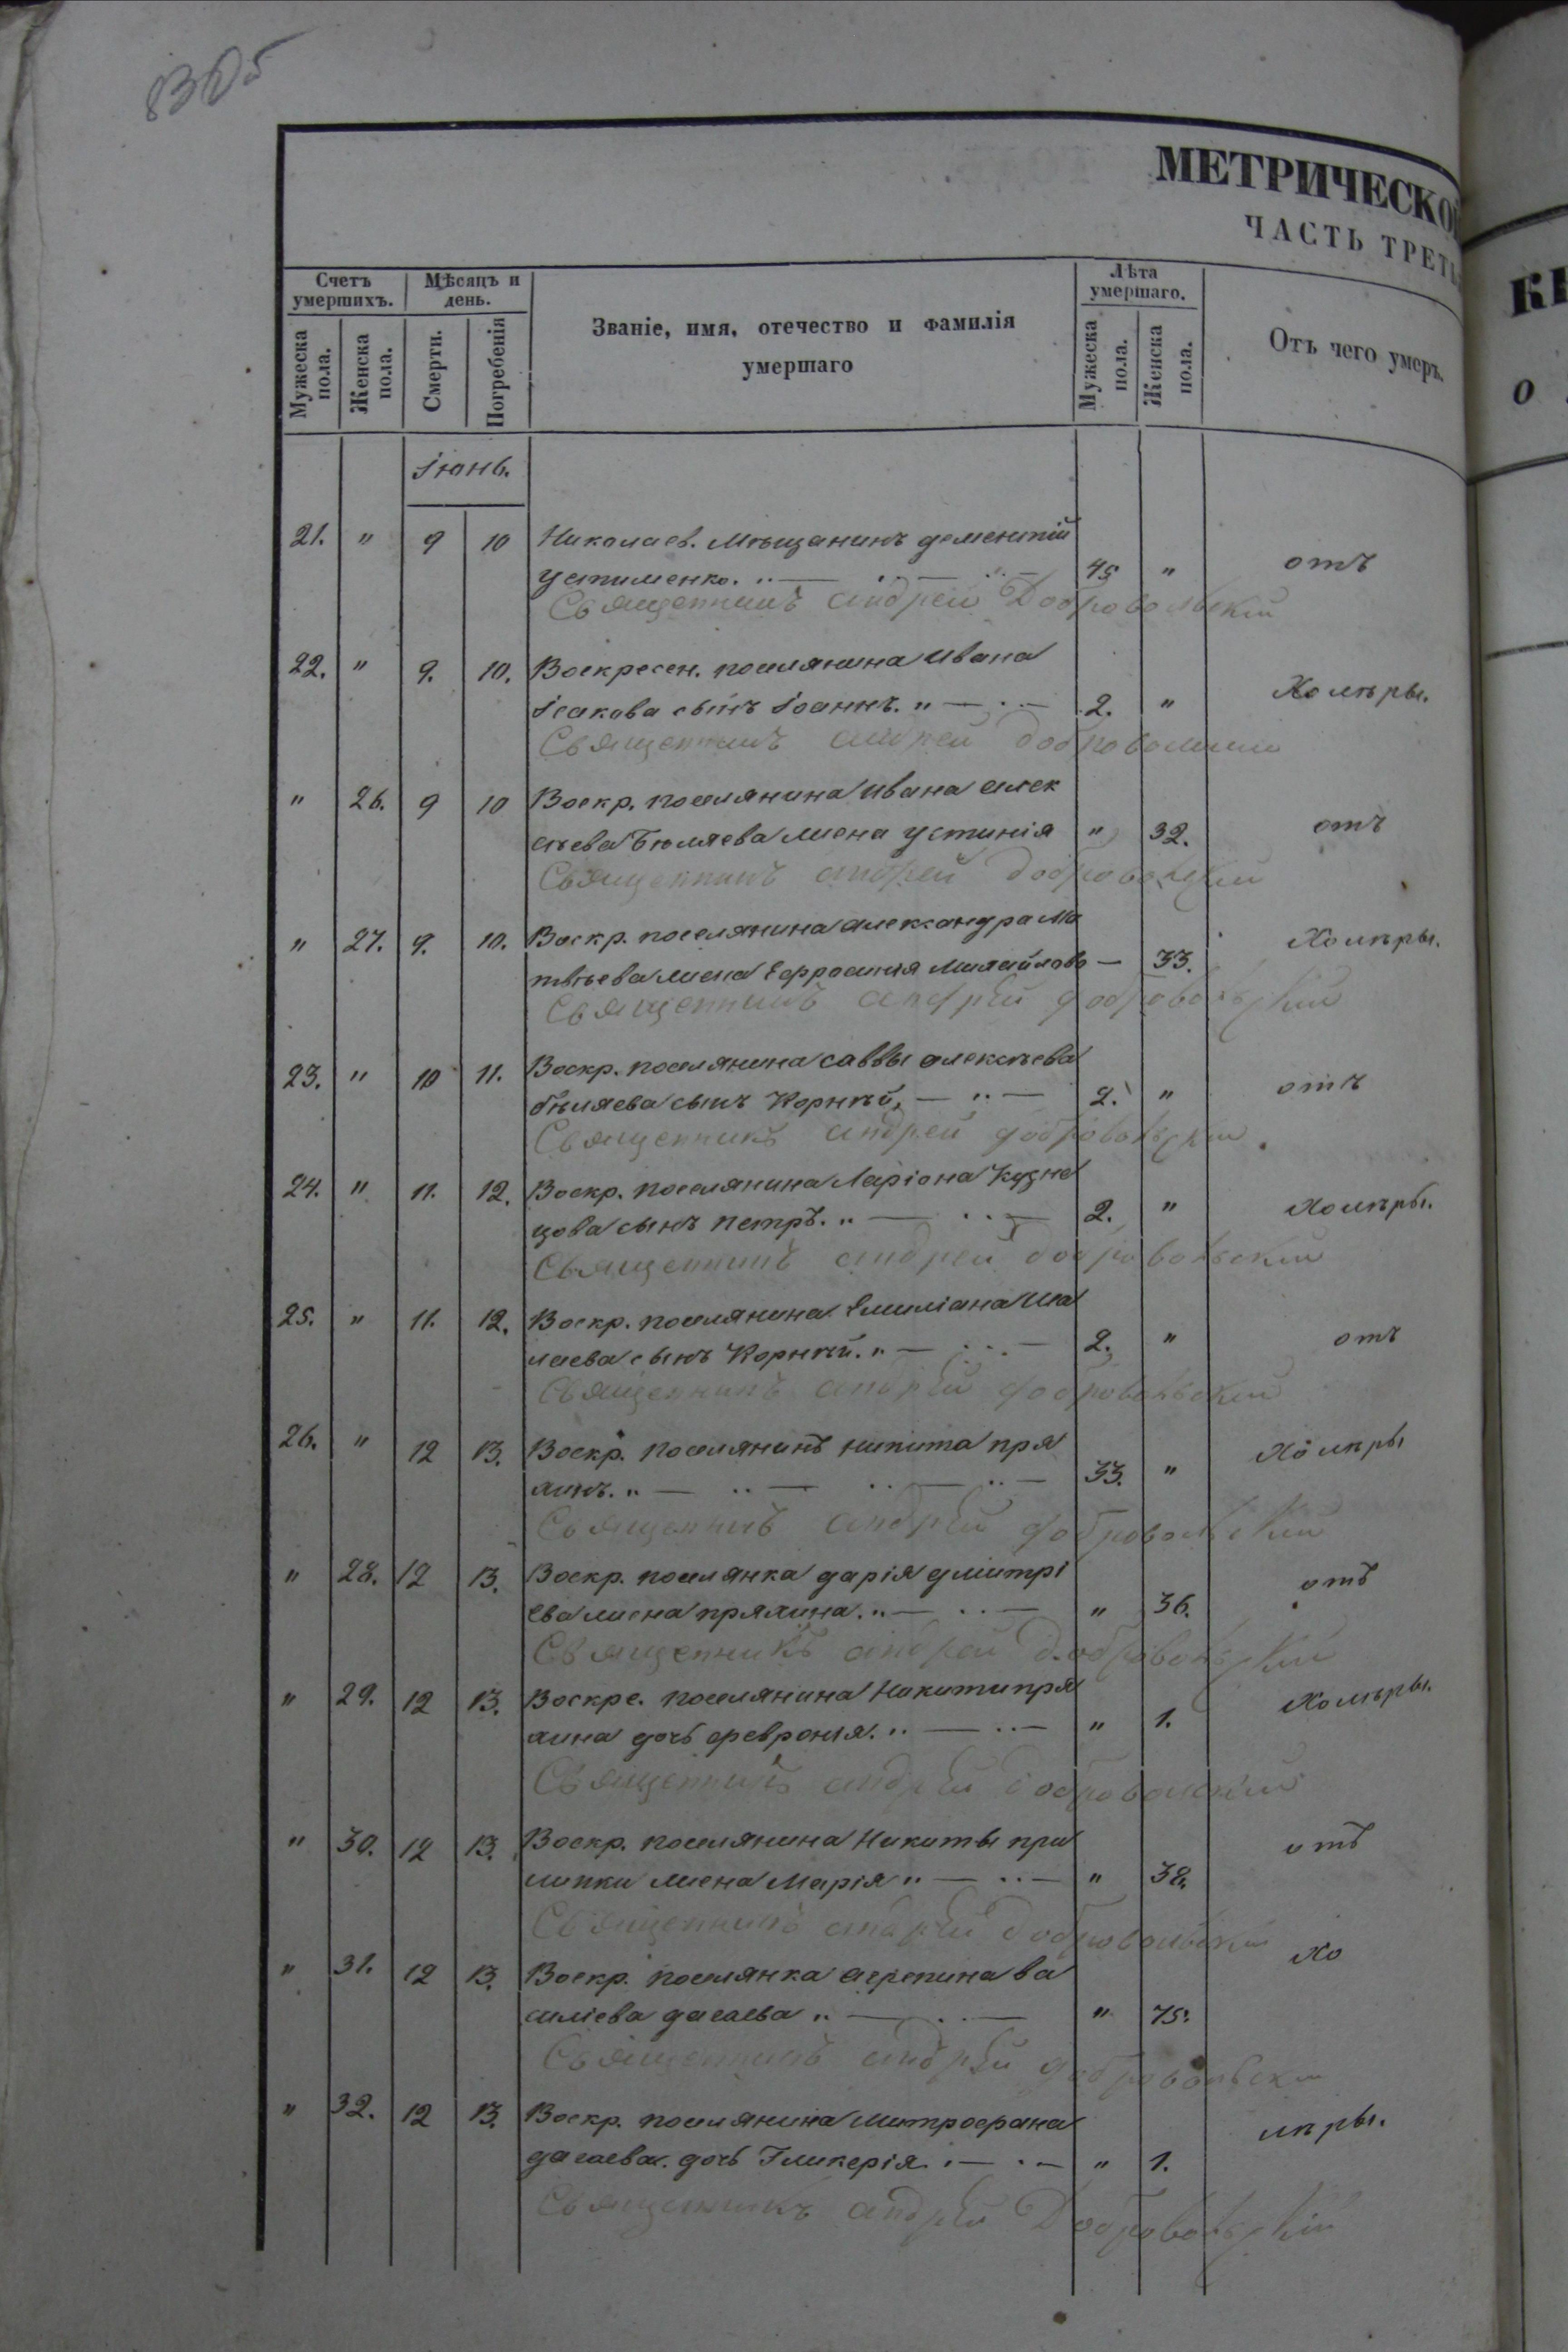 8305
МЕТРИЧЕСКО
ЧАСТЬ ТРЕТЬ
Счетъ умершихъ. Мѣсяцъ и день. Званіе, имя, отечество и фамилія умершаго Лѣта умершаго. Отъ чего умеръ.
Мужеска пола. Женска пола. Смерти. Погребенія Мужеска пола. Женска пола.
КН
О
Іюнь.
21. " 9 10 Николаев. Мѣщанинъ Дементій
Устименко. 45 " отъ
Священникъ Андрей Добровольскій
22. " 9. 10. Воскресен. поселянина Ивана
Исакова сынъ Іоаннъ. " 2. " Холеры.
Священникъ Андрей Добровольскій
" 26. 9 10 Воскр. поселянина Ивана Алек
сѣева жена Устинія " 32. отъ
Священникъ Андрей Добровольскій
" 27. 9. 10. Воскр. поселянина Александра Ма
твѣева жена Ефросинія Михайлова — 33. Холѣры.
Священникъ Андрей Добровольскій
23. " 10 11. Воскр. поселянина Саввы Алексѣева
бѣляева сынъ Корнѣй, 2. " отъ
Священникъ Андрей Добровольскій
24. " 11. 12. Воскр. поселянина Ларіона Кузне
цова сынъ Петръ. " 2. " Холѣры.
Священникъ Андрей Добровольскій
25. " 11. 12. Воскр. поселянина Емиліана Ша
лаева сынъ Корнѣй. " 2. " отъ
Священникъ Андрей Добровольскій
26. " 12 13. Воскр. поселянинъ Никита Пря
хинъ. " 33. " Холѣры
Священникъ Андрей Добровольскій
" 28. 12 13. Воскр. поселянка Дарія Дмитрі
ева жена Пряхина. " " 36. отъ
Священникъ Андрей Добровольскій
" 29. 12 13. Воскре. поселянина Никиты Пря
хина дочь Февронія. " " 1. Холѣры.
Священникъ Андрей Добровольскій
" 30. 12 13. Воскр. поселянина Никиты При
жена Марія " " 38. отъ
Священникъ Андрей Добровольскій
" 31. 12 13. Воскр. поселянка Агрепина Ва
силіева Дагаева " " 75. Хо
Священникъ Андрей Добровольскій
" 32. 12 13. Воскр. поселянина Митрофана
Дагаева. дочь Гликерія. " 1. лѣры.
Священникъ Андрей Добровольскій